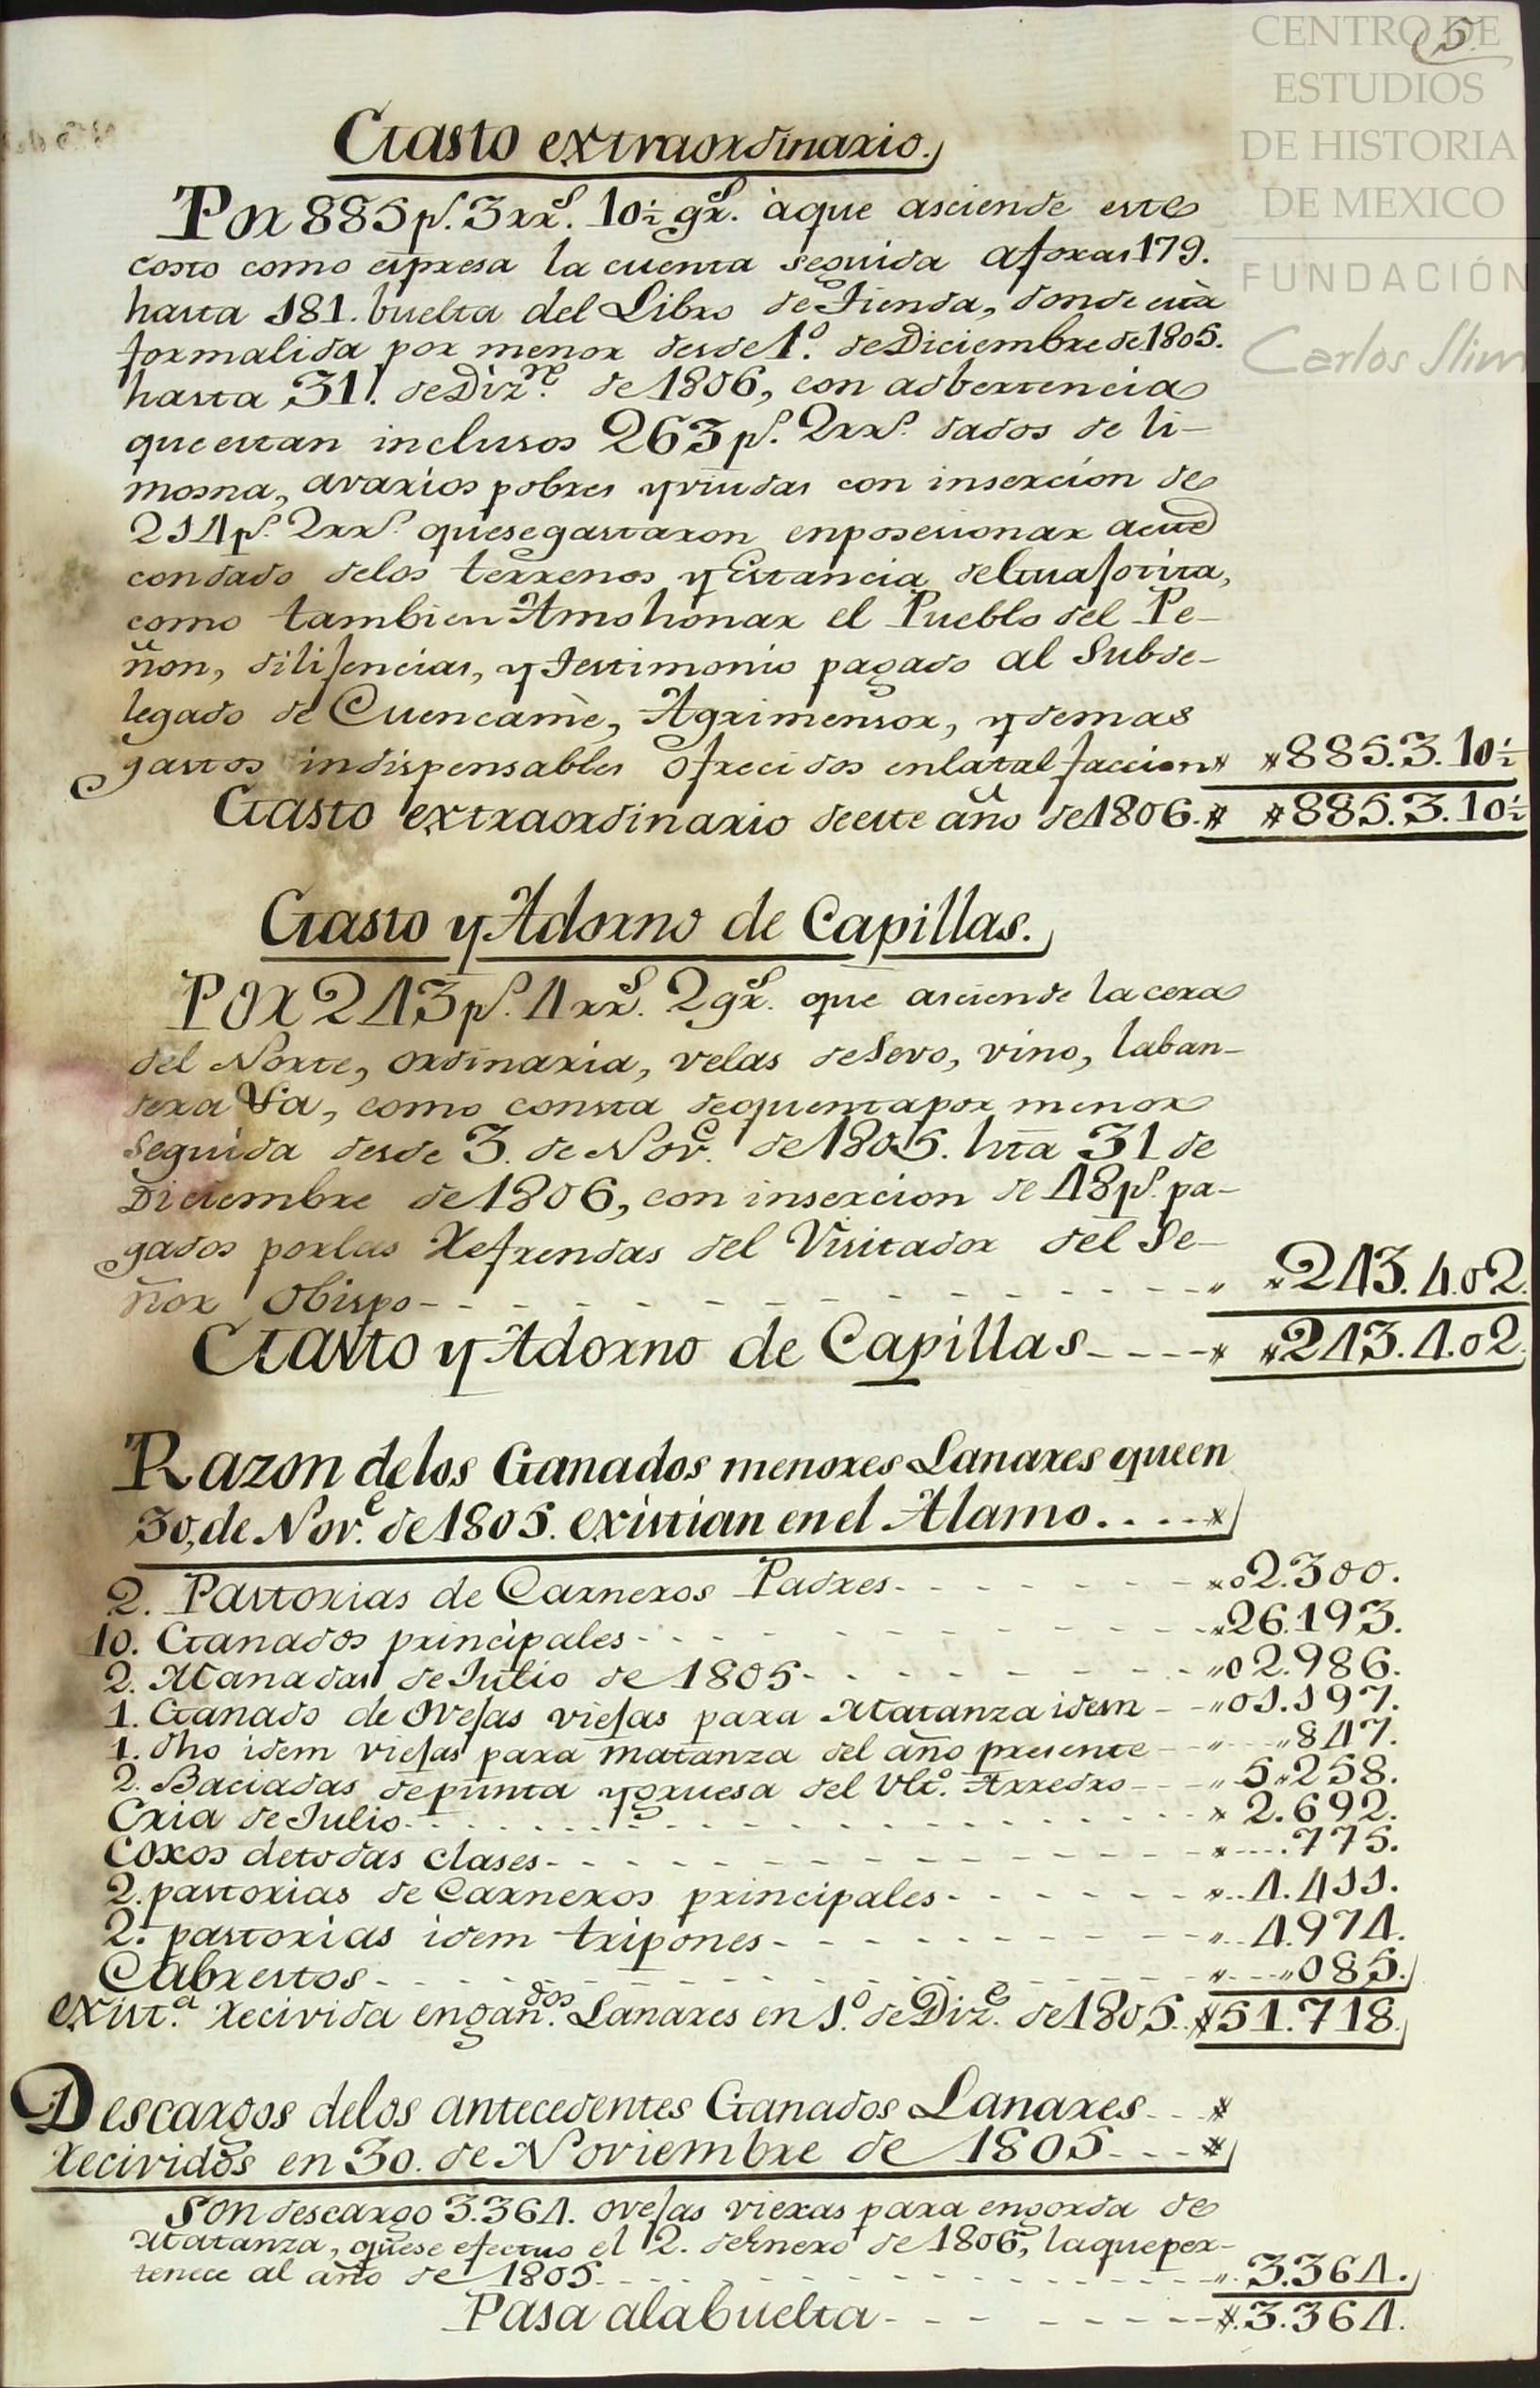 5.
CENTRO DE
ESTUDIOS
DE HISTORIA
DE MEXICO
FUNDACIÓN
Carlos Slim
Gasto extraordinario.
Por 885 p.s 3 rr.s 10½ gr.s àque asciende este
costo como expresa la cuenta seguida afoxas 179.
hasta 181. buelta del Libro de Tienda, donde està
formalida por menor desde 1.º de Diciembre de 1805.
hasta 31. de Diz.re de 1806, con adbertencia
que estan inclusos 263 p.s 2 rr.s dados de li-
mosna, avarios pobres y viudas con insercion de
214 p.s 2 rr.s quesegastaron enposesionar aeste
condado delos terrenos y Estancia de Guajotita,
como tambien Amohonar el Pueblo del Pe-
ñon, dilijencias, y testimonio pagado al Subde-
legado de Cuencamè, Agrimensor, y demas
gastos indispensables ofrecidos enlatal faccion " " 885.3.10½
Gasto extraordinario deeste año de 1806. # # 885.3.10½
Gasto y Adorno de Capillas.
Por 243 p.s 4 rr.s 2 gr.s que asciende lacera
del Norte, ordinaria, velas deSevo, vino, laban-
dera &a, como consta dequentapor menor
Seguida desde 3. de Nov.e de 1805. hta 31 de
Diciembre de 1806, con insercion de 48 p.s pa-
gados porlas Refrendas del Visitador del Se-
ñor Obispo - - - - " " 243.4.02.
Gasto y Adorno de Capillas - - - - " " 243.4.02.
Razon delos Ganados menores Lanares queen
30, de Nov.e de 1805. existian en el Alamo. . . . "
2. Pastorias de Carneros Padres - - - - " 02.300.
10. Ganados principales - - - - " 26.193.
2. Manadas de Julio de 1805 - - - - " 02.986.
1. Ganado de Ovejas viejas para Matanza idem - - " 01.197.
1. dho idem viejas para matanza del año presente - - " " 847.
2. Baciadas depunta ygruesa del Ult.º Arredro - - " 5"258.
Cria de Julio - - - - " 2.692.
Coxos detodas clases - - - - " 775.
2. pastorias de Carneros principales - - - - " 4.411.
2. pastorias idem tripones - - - - " 4.974.
Cabrestos - - - - " " 085.
Exist.a recivida engan.dos Lanares en 1.º de Diz.e de 1805. # 51.718.
Descargos delos antecedentes Ganados Lanares - - #
recividos en 30. de Noviembre de 1805 - - - #
Son descargo 3.364. ovejas viexas para engorda de
Matanza, quese efectuo el 2. deEnero de 1806, laqueper-
tenece al año de 1805 - - - - " 3.364.
Pasa alabuelta - - - - # 3.364.